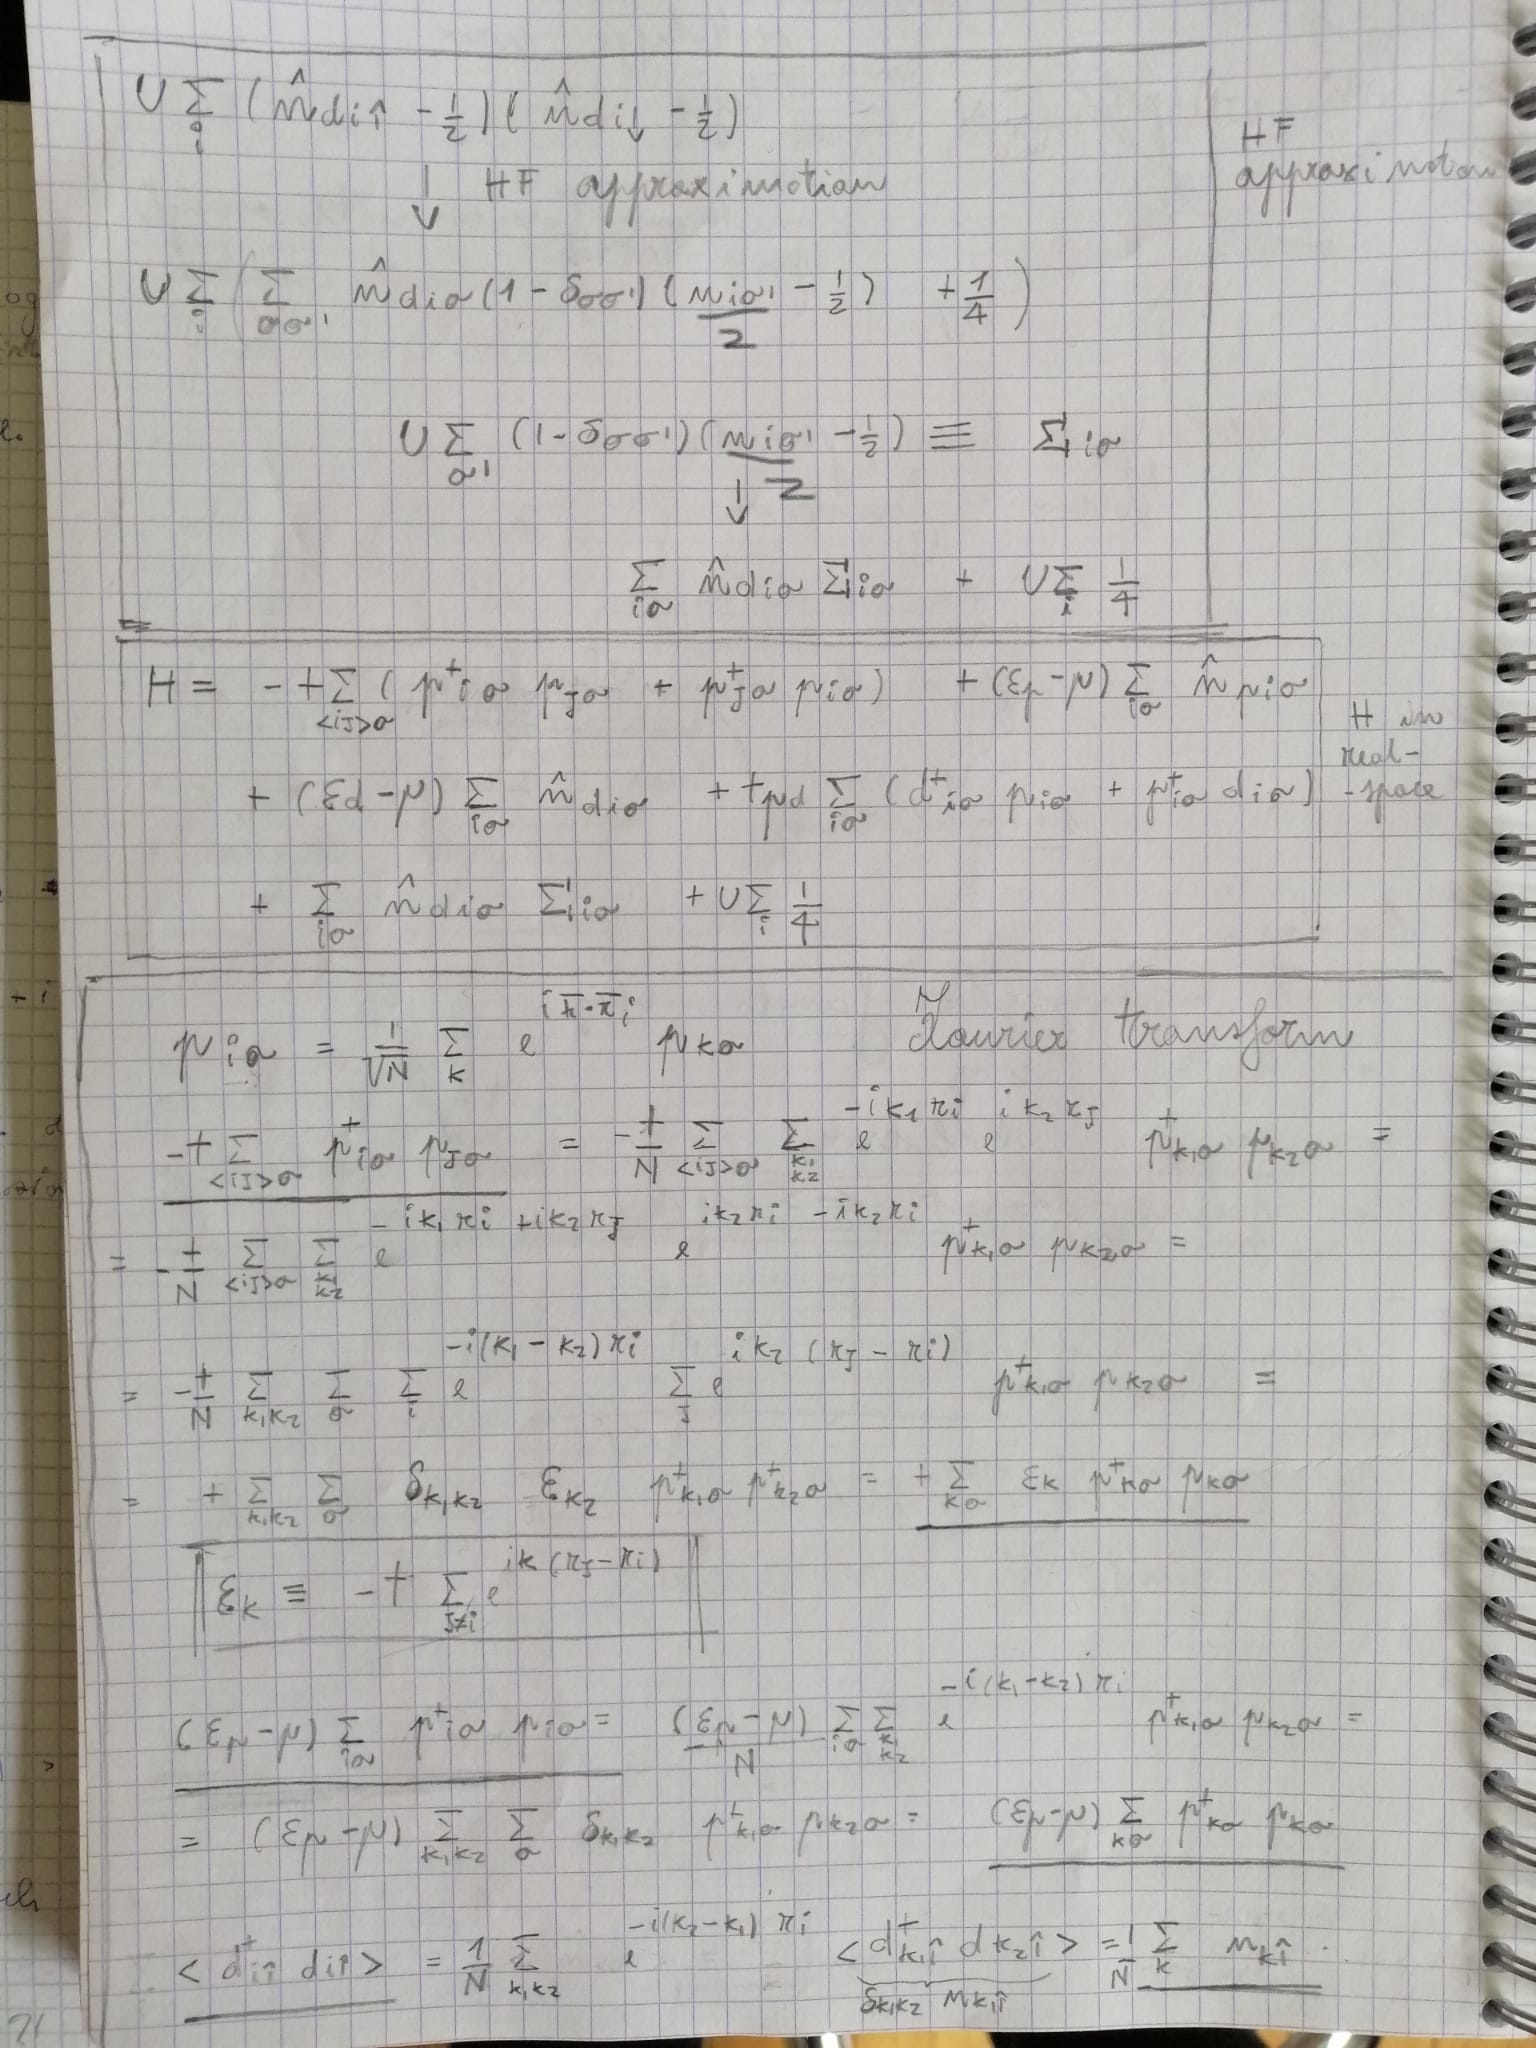 U Σ_i (n̂_{di↑} - 1/2)(n̂_{di↓} - 1/2)
HF
approximation
↓ HF approximation
U Σ_i (Σ_{σσ'} n̂_{diσ} (1 - δ_{σσ'}) (n_{iσ'}/2 - 1/2) + 1/4)
U Σ_{σ'} (1 - δ_{σσ'}) (n_{iσ'}/2 - 1/2) ≡ Σ_{iσ}
↓
Σ_{iσ} n̂_{diσ} Σ_{iσ} + U Σ_i 1/4
H = -t Σ_{<iJ>σ} (p^+_{iσ} p_{Jσ} + p^+_{Jσ} p_{iσ}) + (ε_p - μ) Σ_{iσ} n̂_{piσ}
+ (ε_d - μ) Σ_{iσ} n̂_{diσ} + t_{pd} Σ_{iσ} (d^+_{iσ} p_{iσ} + p^+_{iσ} d_{iσ})
H in
real-
-space
+ Σ_{iσ} n̂_{diσ} Σ_{iσ} + U Σ_i 1/4
p_{iσ} = 1/√N Σ_k e^{i k̄·r̄_i} p_{kσ} Fourier transform
-t Σ_{<iJ>σ} p^+_{iσ} p_{Jσ} = -t/N Σ_{<iJ>σ} Σ_{k1 k2} e^{-ik_1 r_i} e^{ik_2 r_J} p^+_{k1σ} p_{k2σ} =
= -t/N Σ_{<iJ>σ} Σ_{k1 k2} e^{-ik_1 r_i + ik_2 r_J} e^{ik_2 r_i - ik_2 r_i} p^+_{k1σ} p_{k2σ} =
= -t/N Σ_{k1k2} Σ_σ Σ_i e^{-i(k_1 - k_2) r_i} Σ_J e^{ik_2 (r_J - r_i)} p^+_{k1σ} p_{k2σ} =
= + Σ_{k1k2} Σ_σ δ_{k1k2} ε_{k2} p^+_{k1σ} p^+_{k2σ} = + Σ_{kσ} ε_k p^+_{kσ} p_{kσ}
ε_k ≡ -t Σ_{J≠i} e^{ik(r_J - r_i)}
(ε_p - μ) Σ_{iσ} p^+_{iσ} p_{iσ} = (ε_p - μ)/N Σ_{iσ} Σ_{k1 k2} e^{-i(k_1 - k_2) r_i} p^+_{k1σ} p_{k2σ} =
= (ε_p - μ) Σ_{k1k2} Σ_σ δ_{k1k2} p^+_{k1σ} p_{k2σ} = (ε_p - μ) Σ_{kσ} p^+_{kσ} p_{kσ}
<d^+_{i↑} d_{i↑}> = 1/N Σ_{k1k2} e^{-i(k_2 - k_1) r_i} <d^+_{k1↑} d_{k2↑}> = 1/N Σ_k n_{k↑}
δ_{k1k2} n_{k1↑}